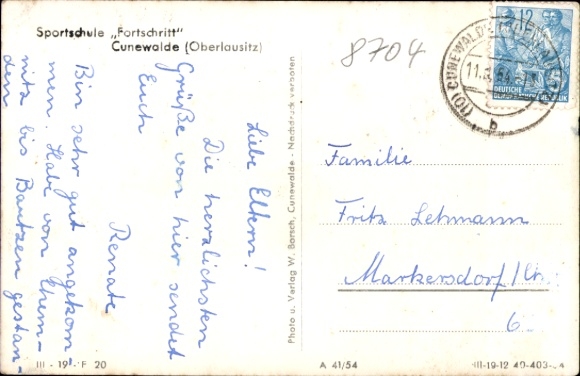 Sportschule „Fortschritt"
Cunewalde (Oberlausitz)
8704
12
DEUTSCHE
DEMOKRATISCHE REPUBLIK
(10) CUNEWALDE
b
Liebe Eltern!
Die herzlichsten
Grüße von hier sendet
Euch
Renate
Bin sehr gut angekom-
men. Habe von Chem-
nitz bis Bautzen gestan-
den
Photo u. Verlag W. Barsch, Cunewalde - Nachdruck verboten
Familie
Fritz Lehmann
Markersdorf/
6.
III - 19 - F 20
A 41/54
III-19-12 40-403